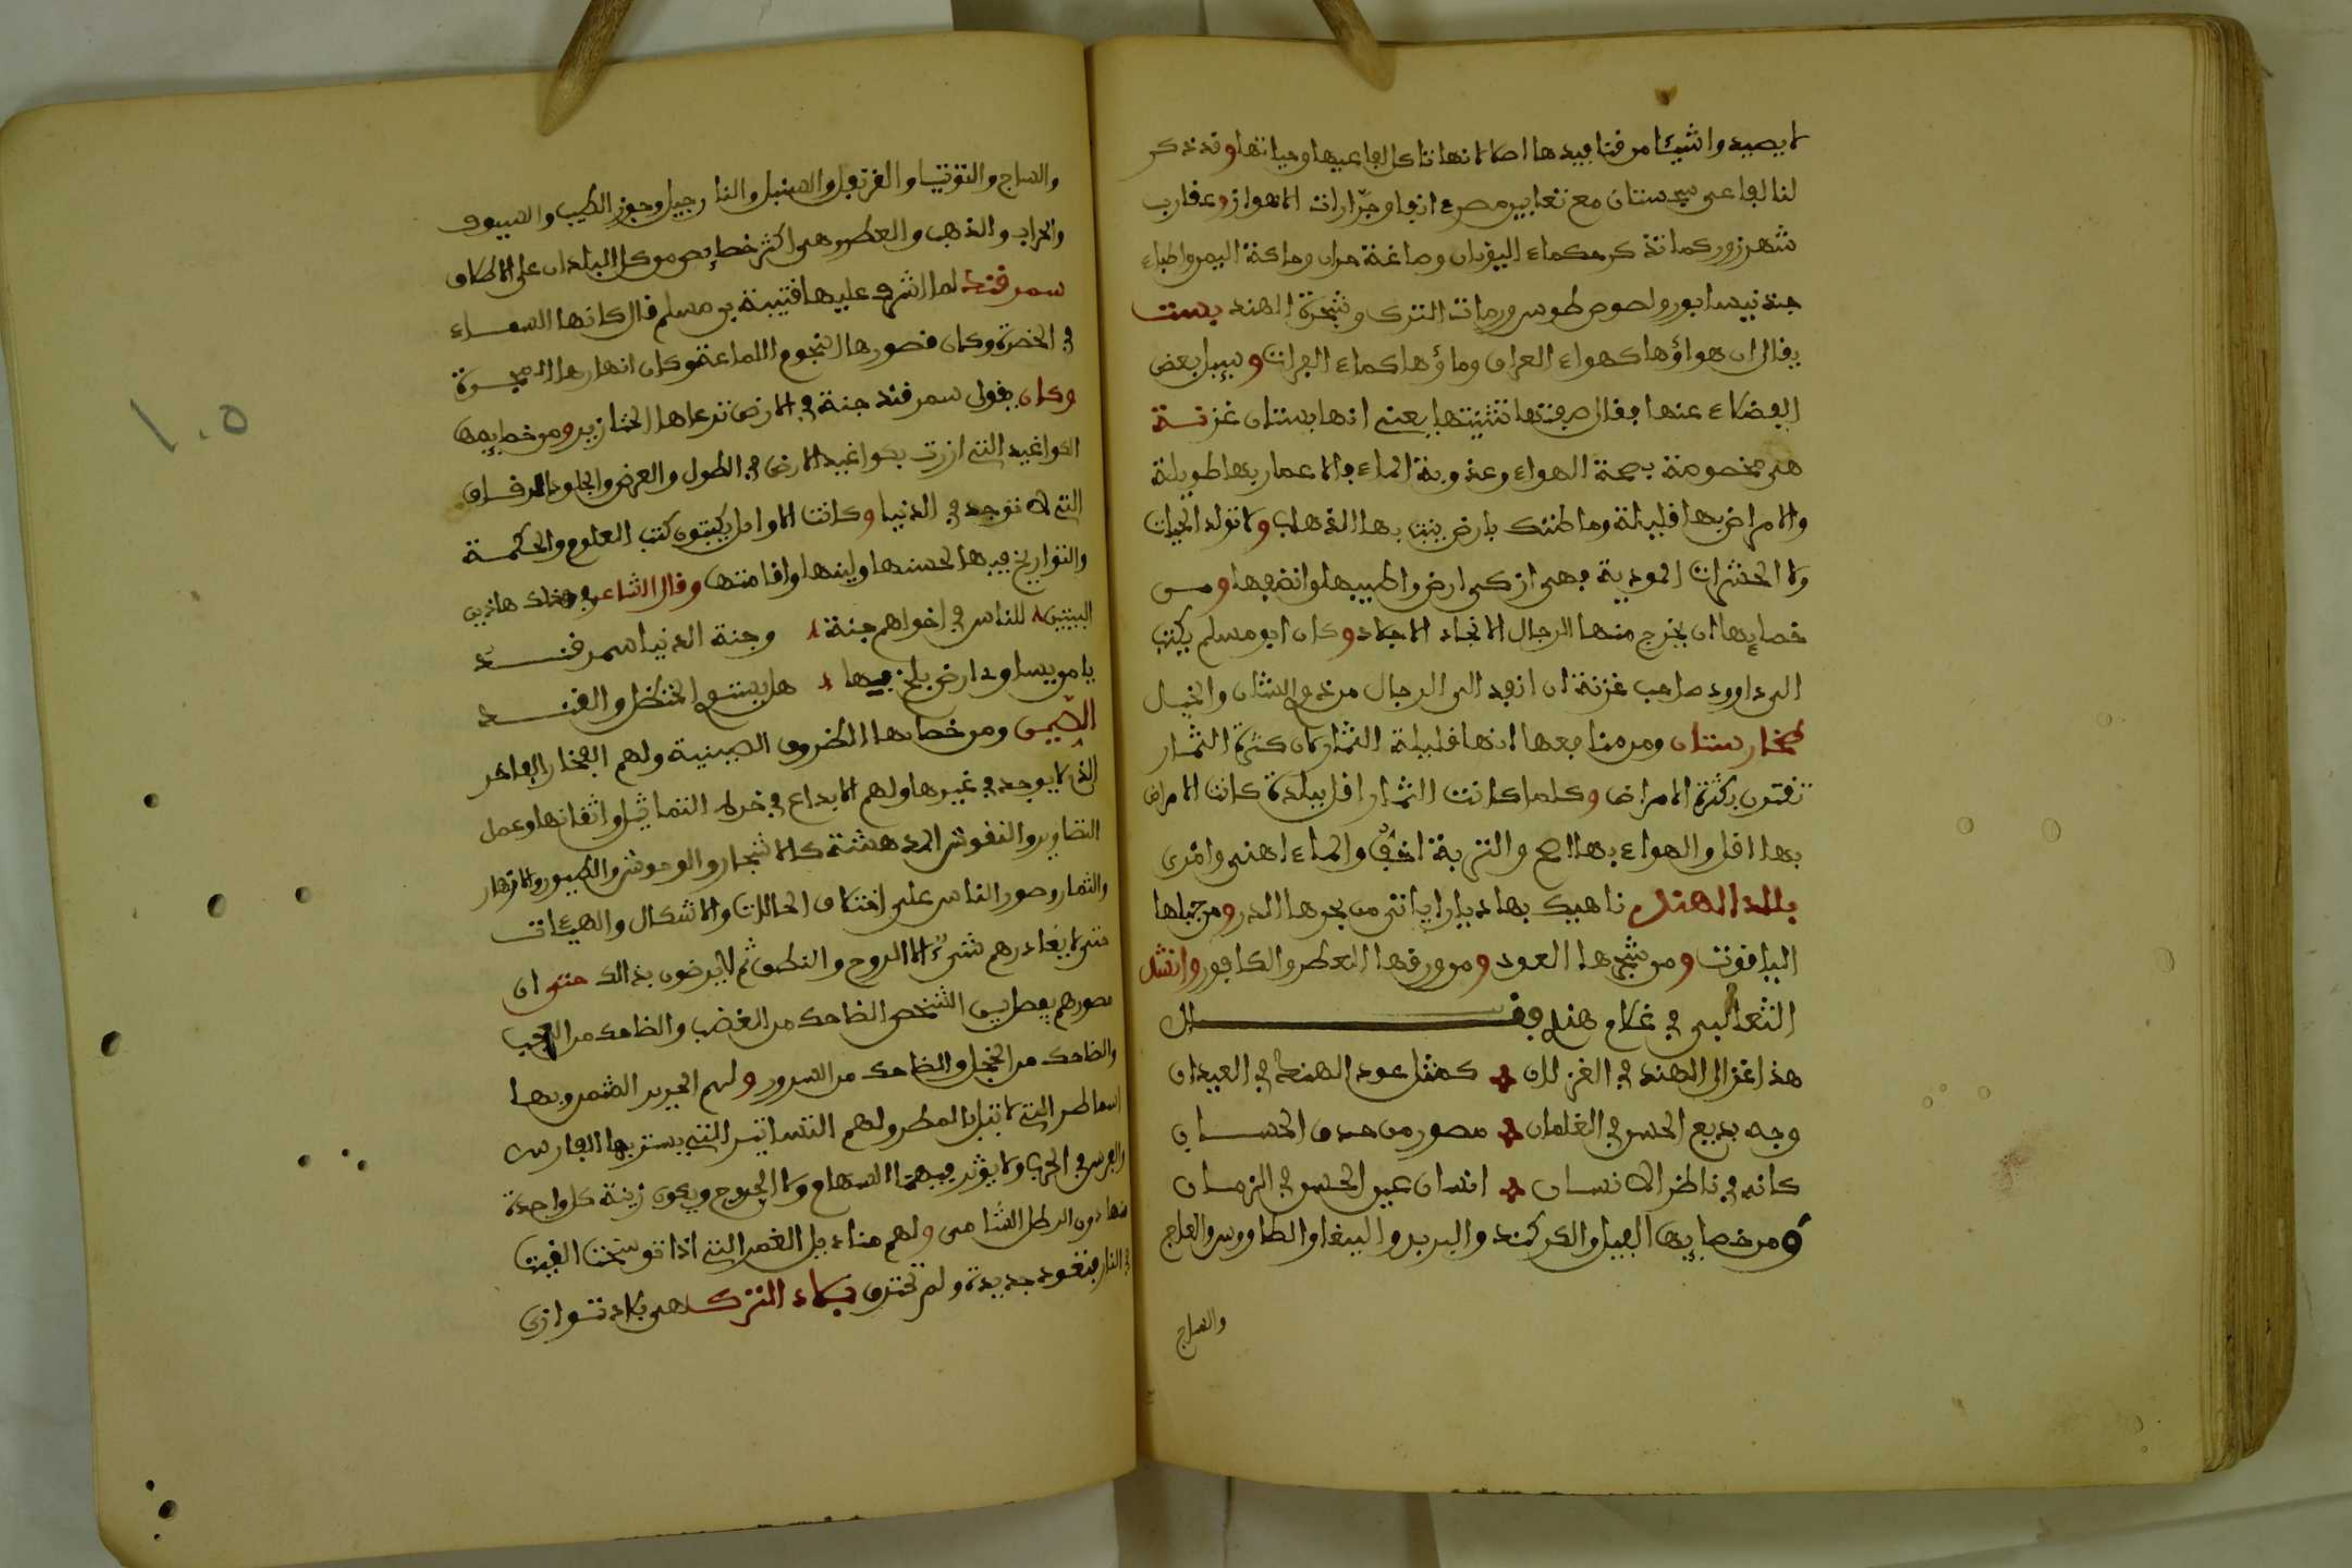 لا يصيدوا شيئا من قنافيدها اصلا لانها تاكل افاعيها وحياتها وقد ذكر
لنا افاعى سجستان مع ثعابين مصر وافعا وجرّارات الاهواز وعقارب
شهرزور كما تذكر حكماء اليونان وصاغة حران وحاكة اليمن واطباء
جند نيسابور ولصوص طوس ورمات الترك وسحرة الهند بست
يقال ان هواؤها كهواء العراق وماؤها كماء الفرات وسيل بعض
الفضلاء عنها فقال صفتها تثنيتها يعنى انها بستان غزنة
هى مخصوصة بصحة الهواء وعذوبة الماء والاعمار بها طويلة
والامراض بها قليلة وما ظنك بارض ينبت بها الذهب ولا تولد الحيات
ولا الحشرات الموذية فهى ازكى ارض واطيبها وانفعها ومن
خصايصها ان يخرج منها الرجال الانجاد الاجلاد وكان ابو مسلم يكتب
الى داوود صاحب غزنة ان انفد الى الرجال من غزنة الشان والخيال
طخارستان ومن منافعها انها قليلة الثمار لان كثرة الثمار
تقترن بكثرة الامراض وكلما كانت الثمار اقل ببلدة كانت الامراض
بها اقل والهواء بها اصح والتربة اخف والماء اهنى وامرى
بلاد الهند ناهيك بها ديارا ياتى من بحرها الدر ومن جبلها
الياقوت ومن شجرها العود ومن ورقها العطر والكافور وانشد
الثعالبى فى غلام هندى فقال
هذا غزال الهند فى الغزلان كمثل عود الهند فى العيدان
وجه بديع الحسن فى الغلمان مصور من حدق الحسان
كانه فى ناظر الانسان انسان عين الحسن فى الزمان
ومن خصايصها الفيل والكركند والببر والببغا والطاووس والعاج
والساج
والساج والتوتيا والقرنفل والسنبل والنارجيل وجوز الطيب والسيوف
والحراب والذهب والعطر وهى اكثر خصايص من كل البلدان على الاطلاق
سمرقند لما اشرف عليها قتيبة بن مسلم قال كانها السماء
فى الخضرة وكان قصورها النجوم اللماعة وكان انهارها المجرة
وكان يقول سمرقند جنة فى الارض ترعاها الخنازير ومن خصايصها
الكواغيد التى ازرت بكواغيد الارض فى الطول والعرض والجلود الرقاق
التى لا توجد فى الدنيا وكانت الاوايل يكتبون كتب العلوم والحكمة
والتواريخ فيها لحسنها ولينها واقامتها وقال الشاعر فى هذاك هاذين
البيتين للناس فى اخراهم جنة وجنة الدنيا سمرقند
يا من يساوى دارض بلخ بها هل يستوى الحنظل والقند
الصّين ومن خصايصها الظروف الصينية ولهم الفخار الفاخر
الذى لا يوجد فى غيرها ولهم الابداع فى خرط التماثيل واتقانها وعمل
التصاوير والنقوش المدهشة كالاشجار والوحوش والطيور والازهار
والثمار وصور الناس على اختلاف الحالات والاشكال والهيئات
حتى لا يغادرهم شىء الا الروح والنطق ثم لا يرضون بذالك حتى ان
مصورهم يفصل بين الشخص الضاحك من الغضب والضاحك من العجب
والضاحك من الخجل والضاحك من السرور ولهم الحرير المثمر وبها
المماطر التى لا تبل بالمطر ولهم التساتير التى يستر بها الفارس
والفرس فى الحرب ولا يؤثر فيهما السهام ولا الجروح ويكون زينة كل واحدة
منها دون الرطل الشامى ولهم مناديل الغمر التى اذا توسخت القيت
فى النار فتعود جديدة ولم تحترق بلاد الترك هى بلاد توازى
١٠٥